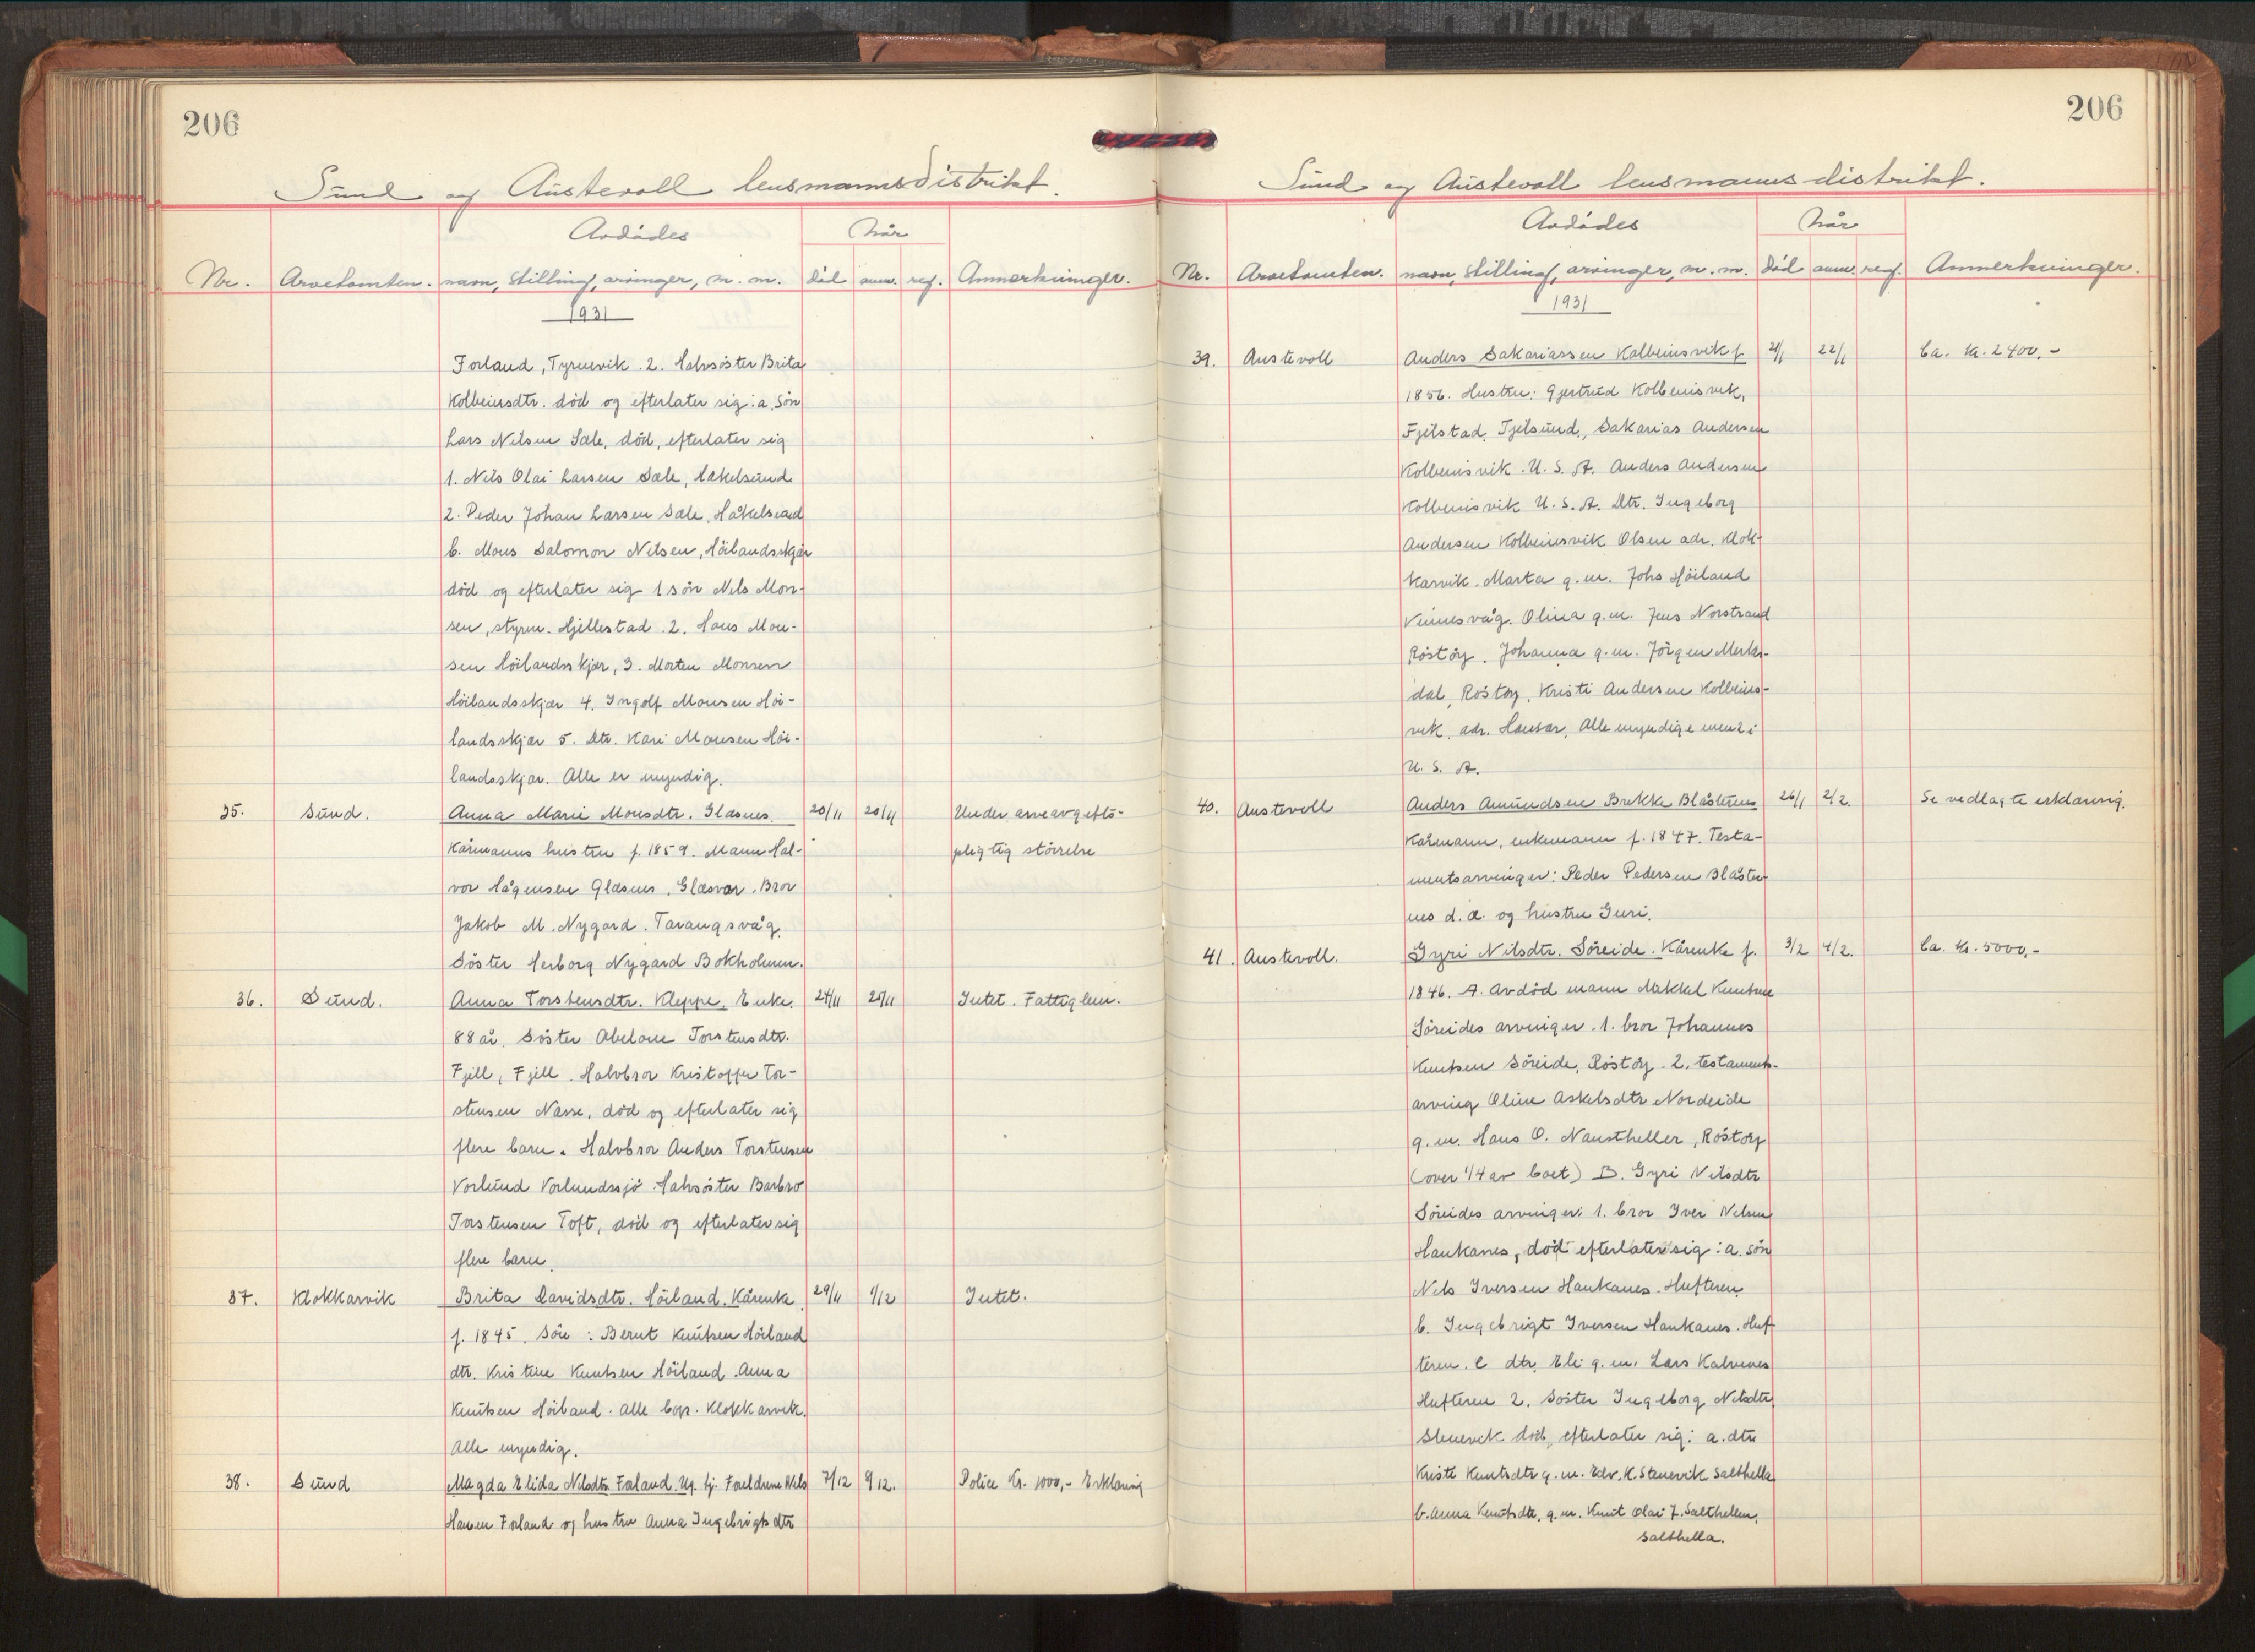 206
Sund og Austevoll lensmannsdistrikt.
Avdödes
Når
Nr. Arvetomten. navn, stilling, arvinger, m. m. död anm. reg. Anmerkninger.
1931
Forland, Tyrnevik. 2. Halvsöster Brita
Kolbeinsdtr. död og efterlater sig: a. Sön
Lars Nilsen Sæle, död, efterlater sig
1. Nils Olai Larsen Sæle, Håkelsund
2. Peder Johan Larsen Sæle, Håkelsund
b. Mons Salomon Nilsen, Höilandsskjær
död og efterlater sig 1 sön Nils Mon-
sen, styrm. Hjellestad. 2. Hans Mon-
sen Höilandsskjær, 3. Morten Monsen
Höilandsskjær 4. Ingolf Monsen Höi-
landsskjær 5. Dtr. Kari Monsen Höi-
landsskjær. Alle er myndig.
35. Sund. Anna Marie Monsdtr. Glæsnes. 20/11 20/11 Under arveavgifts-
Kårmanns hustru f. 1859. Mann Hal- pligtig störrelse
vor Hågensen Glæsnes, Glæsvær. Bror
Jakob M. Nygard. Tarangsvåg.
Söster Herborg Nygard Bokholmen.
36. Sund. Anna Torstensdtr. Kleppe. Enke. 24/11 25/11 Intet. Fattiglem.
88 år. Söster Abelone Torstensdtr.
Fjell, Fjell. Halvbror Kristoffer Tor-
stensen Nesse, död og efterlater sig
flere barn. Halvbror Anders Torstensen
Vorlund Vorlundssjö. Halvsöster Barbro
Torstensen Toft, död og efterlater sig
flere barn.
37. Klokkarvik Brita Davidsdtr. Höiland. Kårenke 29/11 1/12 Intet.
f. 1845. Sön: Bernt Knutsen Höiland
dtr. Kristine Knutsen Höiland. Anna
Knutsen Höiland. Alle bop. Klokkarvik.
Alle myndig.
38. Sund Magda Elida Nilsdtr. Forland. Ug. tj. Foreldrene Nils 7/12 9/12. Police kr. 1000,- Erklæring
Hansen Forland og hustru Anna Ingebrigtsdtr
206
Sund og Austevoll lensmannsdistrikt.
Avdödes
Når
Nr. Arvetomten. navn, stilling, arvinger, m. m. död anm. reg. Anmerkninger.
1931
39. Austevoll Anders Sakariassen Kolbeinsvik f. 21/1 22/1 Ca. kr. 2400,-
1856. Hustru: Gjertrud Kolbeinsvik,
Fjelstad, Tjelsund, Sakarias Andersen
Kolbeinsvik. U. S. A. Anders Andersen
Kolbeinsvik U. S. A. Dtr. Ingeborg
Andersen Kolbeinsvik Olsen adr. Klok-
karvik. Marta g. m. Johs Höiland
Vinnesvåg. Olina g. m. Jens Norstrand
Röstöy. Johanna g. m. Jörgen Merkes-
dal, Röstöy, Kristi Andersen Kolbeins-
vik, adr. Hausar, Alle myndige
U. S. A.
40. Austevoll Anders Amundsen Brekke Blåstenes 26/1 2/2. Se vedlagte erklæring.
Kårmann, enkemann f. 1847. Testa-
mentsarvinger: Peder Pedersen Blåste-
nes d. æ. og hustru Guri.
41. Austevoll. Gyri Nilsdtr. Söreide. Kårenke f. 3/2 4/2. Ca. kr. 5000,-
1846. A. Avdöd mann Mikkel Knutsen
Söreides arvinger. 1. bror Johannes
Knutsen Söreide, Röstöy. 2. testaments-
arving Oline Askelsdtr Nordeide
g. m. Hans O. Naustheller, Röstöy
(over 1/4 av boet) B. Gyri Nilsdtr
Söreides arvinger: 1. bror Iver Nilsen
Haukanes, död efterlater sig: a. sön
Nils Iversen Haukanes. Hufteren
b. Ingebrigt Iversen Haukanes. Huf-
teren. c dtr. Eli g. m. Lars Kalvenes
Hufteren 2. Söster Ingeborg Nilsdtr
Stenevik död, efterlater sig: a. dtr
Kristi Knutsdtr g. m. Edv. K. Stenevik Salthella
b. Anna Knutsdtr. g. m. Knut Olai J. Salthellen,
Salthella.